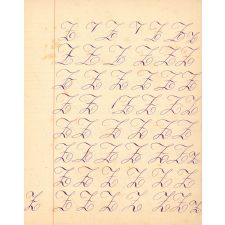 Z Z Z Z z
Z Z Z Z Z Z
Z Z Z Z Z Z
Z Z Z Z Z Z
Z Z Z Z Z Z
Z Z Z Z Z Z
Z Z Z Z Z Z z
Z Z Z Z Z Z
Z Z Z Z Z Z Z z